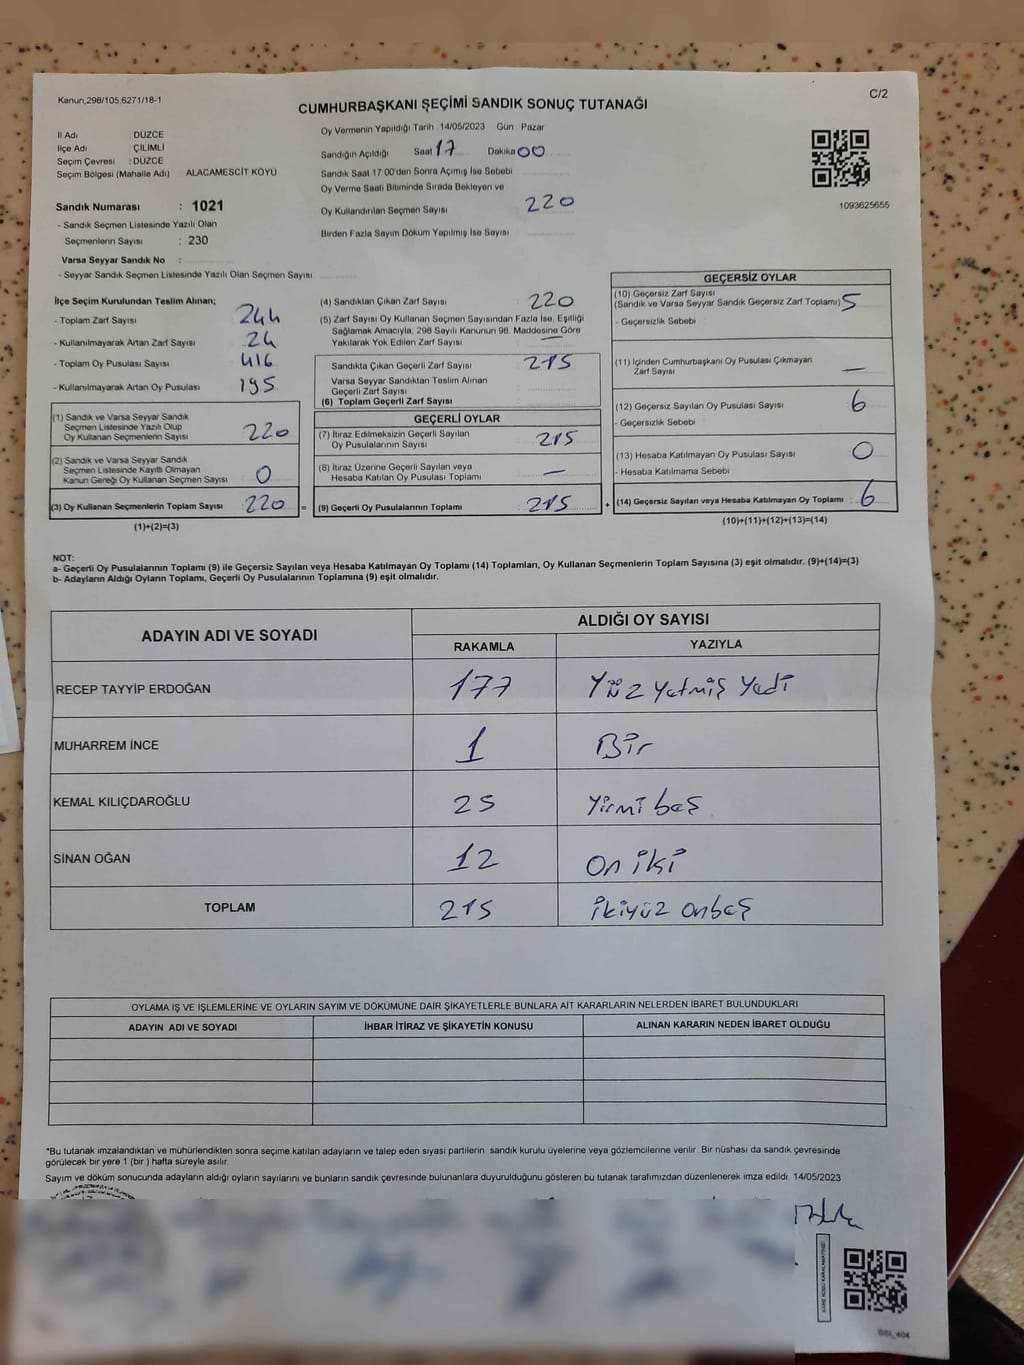 Kanun,298/105,6271/18-1
C/2
CUMHURBAŞKANI SEÇİMİ SANDIK SONUÇ TUTANAĞI
İl Adı : DÜZCE
İlçe Adı : ÇİLİMLİ
Seçim Çevresi : DÜZCE
Seçim Bölgesi (Mahalle Adı) ALACAMESCİT KÖYÜ
Sandık Numarası : 1021
- Sandık Seçmen Listesinde Yazılı Olan
Seçmenlerin Sayısı : 230
Varsa Seyyar Sandık No :
- Seyyar Sandık Seçmen Listesinde Yazılı Olan Seçmen Sayısı
Oy Vermenin Yapıldığı Tarih 14/05/2023 Gün : Pazar
Sandığın Açıldığı Saat 17 Dakika 00
Sandık Saat 17 00'den Sonra Açımış İse Sebebi
Oy Verme Saati Bitiminde Sırada Bekleyen ve
Oy Kullandırılan Seçmen Sayısı 220
Birden Fazla Sayım Döküm Yapılmış İse Sayısı
1093625655
İlçe Seçim Kurulundan Teslim Alınan;
- Toplam Zarf Sayısı 244
- Kullanılmayarak Artan Zarf Sayısı 24
- Toplam Oy Pusulası Sayısı 416
- Kullanılmayarak Artan Oy Pusulası 195
(1) Sandık ve Varsa Seyyar Sandık
Seçmen Listesinde Yazılı Olup
Oy Kullanan Seçmenlerin Sayısı 220
(2) Sandık ve Varsa Seyyar Sandık
Seçmen Listesinde Kayıtlı Olmayan
Kanun Gereği Oy Kullanan Seçmen Sayısı 0
(3) Oy Kullanan Seçmenlerin Toplam Sayısı : 220 =
(1)+(2)=(3)
(4) Sandıktan Çıkan Zarf Sayısı : 220
(5) Zarf Sayısı Oy Kullanan Seçmen Sayısından Fazla İse, Eşitliği
Sağlamak Amacıyla; 298 Sayılı Kanunun 98. Maddesine Göre
Yakılarak Yok Edilen Zarf Sayısı : —
Sandıkta Çıkan Geçerli Zarf Sayısı : 215
Varsa Seyyar Sandıktan Teslim Alınan
Geçerli Zarf Sayısı
(6) Toplam Geçerli Zarf Sayısı
GEÇERLİ OYLAR
(7) İtiraz Edilmeksizin Geçerli Sayılan
Oy Pusulalarının Sayısı : 215
(8) İtiraz Üzerine Geçerli Sayılan veya
Hesaba Katılan Oy Pusulası Toplamı : —
(9) Geçerli Oy Pusulalarının Toplamı : 215 +
GEÇERSİZ OYLAR
(10) Geçersiz Zarf Sayısı
(Sandık ve Varsa Seyyar Sandık Geçersiz Zarf Toplamı) 5
- Geçersizlik Sebebi
(11) İçinden Cumhurbaşkanı Oy Pusulası Çıkmayan
Zarf Sayısı —
(12) Geçersiz Sayılan Oy Pusulası Sayısı : 6
- Geçersizlik Sebebi
(13) Hesaba Katılmayan Oy Pusulası Sayısı : 0
- Hesaba Katılmama Sebebi
(14) Geçersiz Sayılan veya Hesaba Katılmayan Oy Toplamı : 6
(10)+(11)+(12)+(13)=(14)
NOT:
a- Geçerli Oy Pusulalarının Toplamı (9) ile Geçersiz Sayılan veya Hesaba Katılmayan Oy Toplamı (14) Toplamları, Oy Kullanan Seçmenlerin Toplam Sayısına (3) eşit olmalıdır. (9)+(14)=(3)
b- Adayların Aldığı Oyların Toplamı, Geçerli Oy Pusulalarının Toplamına (9) eşit olmalıdır.
ADAYIN ADI VE SOYADI
ALDIĞI OY SAYISI
RAKAMLA YAZIYLA
RECEP TAYYİP ERDOĞAN 177 Yüz Yetmiş Yedi
MUHARREM İNCE 1 Bir
KEMAL KILIÇDAROĞLU 25 Yirmi beş
SİNAN OĞAN 12 On iki
TOPLAM 215 İkiyüz onbeş
OYLAMA İŞ VE İŞLEMLERİNE VE OYLARIN SAYIM VE DÖKÜMÜNE DAİR ŞİKAYETLERLE BUNLARA AİT KARARLARIN NELERDEN İBARET BULUNDUKLARI
ADAYIN ADI VE SOYADI İHBAR İTİRAZ VE ŞİKAYETİN KONUSU ALINAN KARARIN NEDEN İBARET OLDUĞU
*Bu tutanak imzalandıktan ve mühürlendikten sonra seçime katılan adayların ve talep eden siyasi partilerin sandık kurulu üyelerine veya gözlemcilerine verilir. Bir nüshası da sandık çevresinde
görülecek bir yere 1 (bir ) hafta süreyle asılır.
Sayım ve döküm sonucunda adayların aldığı oyların sayılarını ve bunların sandık çevresinde bulunanlara duyurulduğunu gösteren bu tutanak tarafımızdan düzenlenerek imza edildi. 14/05/2023